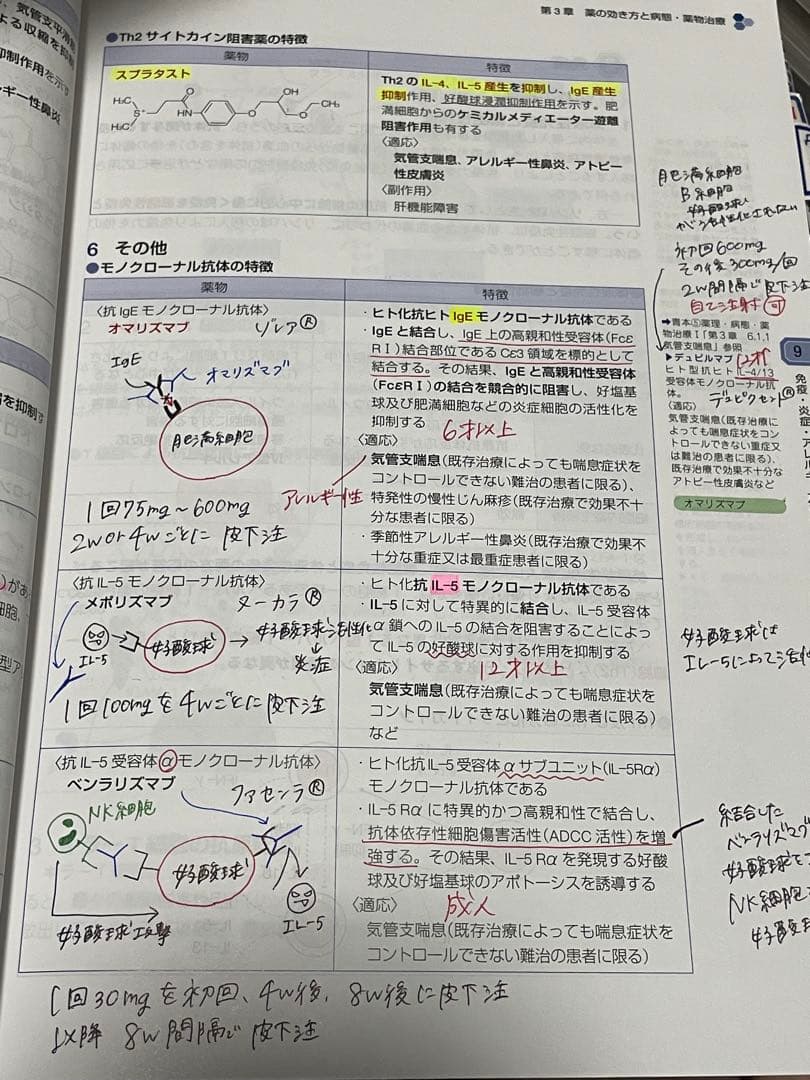 第3章 薬の効き方と病態・薬物治療
●Th2サイトカイン阻害薬の特徴
薬物
特徴
スプラタスト
H₃C
S⁺
H₃C
O
HN
OH
O
O
CH₃
Th2のIL-4、IL-5産生を抑制し、IgE産生
抑制作用、好酸球浸潤抑制作用を示す。肥
満細胞からのケミカルメディエーター遊離
阻害作用も有する
〈適応〉
気管支喘息、アレルギー性鼻炎、アトピー
性皮膚炎
〈副作用〉
肝機能障害
肥満細胞
B細胞
好酸球
初回600mg
その後300mg/回
2w間隔で皮下注
自己注射可
6 その他
●モノクローナル抗体の特徴
薬物
特徴
〈抗IgEモノクローナル抗体〉
オマリズマブ ゾレア®
IgE
オマリズマブ
肥満細胞
1回75mg~600mg
2w or 4wごとに皮下注
・ヒト化抗ヒトIgEモノクローナル抗体である
・IgEと結合し、IgE上の高親和性受容体(Fcε
RⅠ)結合部位であるCε3領域を標的として
結合する。その結果、IgEと高親和性受容体
(FcεRⅠ)の結合を競合的に阻害し、好塩基
球及び肥満細胞などの炎症細胞の活性化を
抑制する
6才以上
〈適応〉
アレルギー性
気管支喘息(既存治療によっても喘息症状を
コントロールできない難治の患者に限る)、
特発性の慢性じん麻疹(既存治療で効果不十
分な患者に限る)
・季節性アレルギー性鼻炎(既存治療で効果不
十分な重症又は最重症患者に限る)
➡青本⑤薬理・病態・薬
物治療Ⅰ「第3章 6.1.1
気管支喘息」参照
▶デュピルマブ
12才
ヒト型抗ヒトIL-4/13
受容体モノクローナル抗
体。
デュピクセント®
〈適応〉
気管支喘息(既存治療に
よっても喘息症状をコン
トロールできない重症又
は難治の患者に限る)、
既存治療で効果不十分な
アトピー性皮膚炎など
オマリズマブ
9
〈抗IL-5モノクローナル抗体〉
メポリズマブ ヌーカラ®
IL-5
好酸球
好酸球活性化
炎症
1回100mgを4wごとに皮下注
・ヒト化抗IL-5モノクローナル抗体である
・IL-5に対して特異的に結合し、IL-5受容体
α鎖へのIL-5の結合を阻害することによっ
てIL-5の好酸球に対する作用を抑制する
〈適応〉
12才以上
気管支喘息(既存治療によっても喘息症状を
コントロールできない難治の患者に限る)
など
好酸球は
IL-5によって活性
〈抗IL-5受容体αモノクローナル抗体〉
ベンラリズマブ ファセンラ®
NK細胞
好酸球
IL-5
好酸球攻撃
・ヒト化抗IL-5受容体αサブユニット(IL-5Rα)
モノクローナル抗体である
・IL-5 Rαに特異的かつ高親和性で結合し、
抗体依存性細胞傷害活性(ADCC活性)を増
強する。その結果、IL-5 Rαを発現する好酸
球及び好塩基球のアポトーシスを誘導する
〈適応〉
成人
気管支喘息(既存治療によっても喘息症状を
コントロールできない難治の患者に限る)
結合した
ベンラリズマブ
好酸球を
NK細胞
好酸球
1回30mgを初回、4w後、8w後に皮下注
以降 8w間隔で皮下注